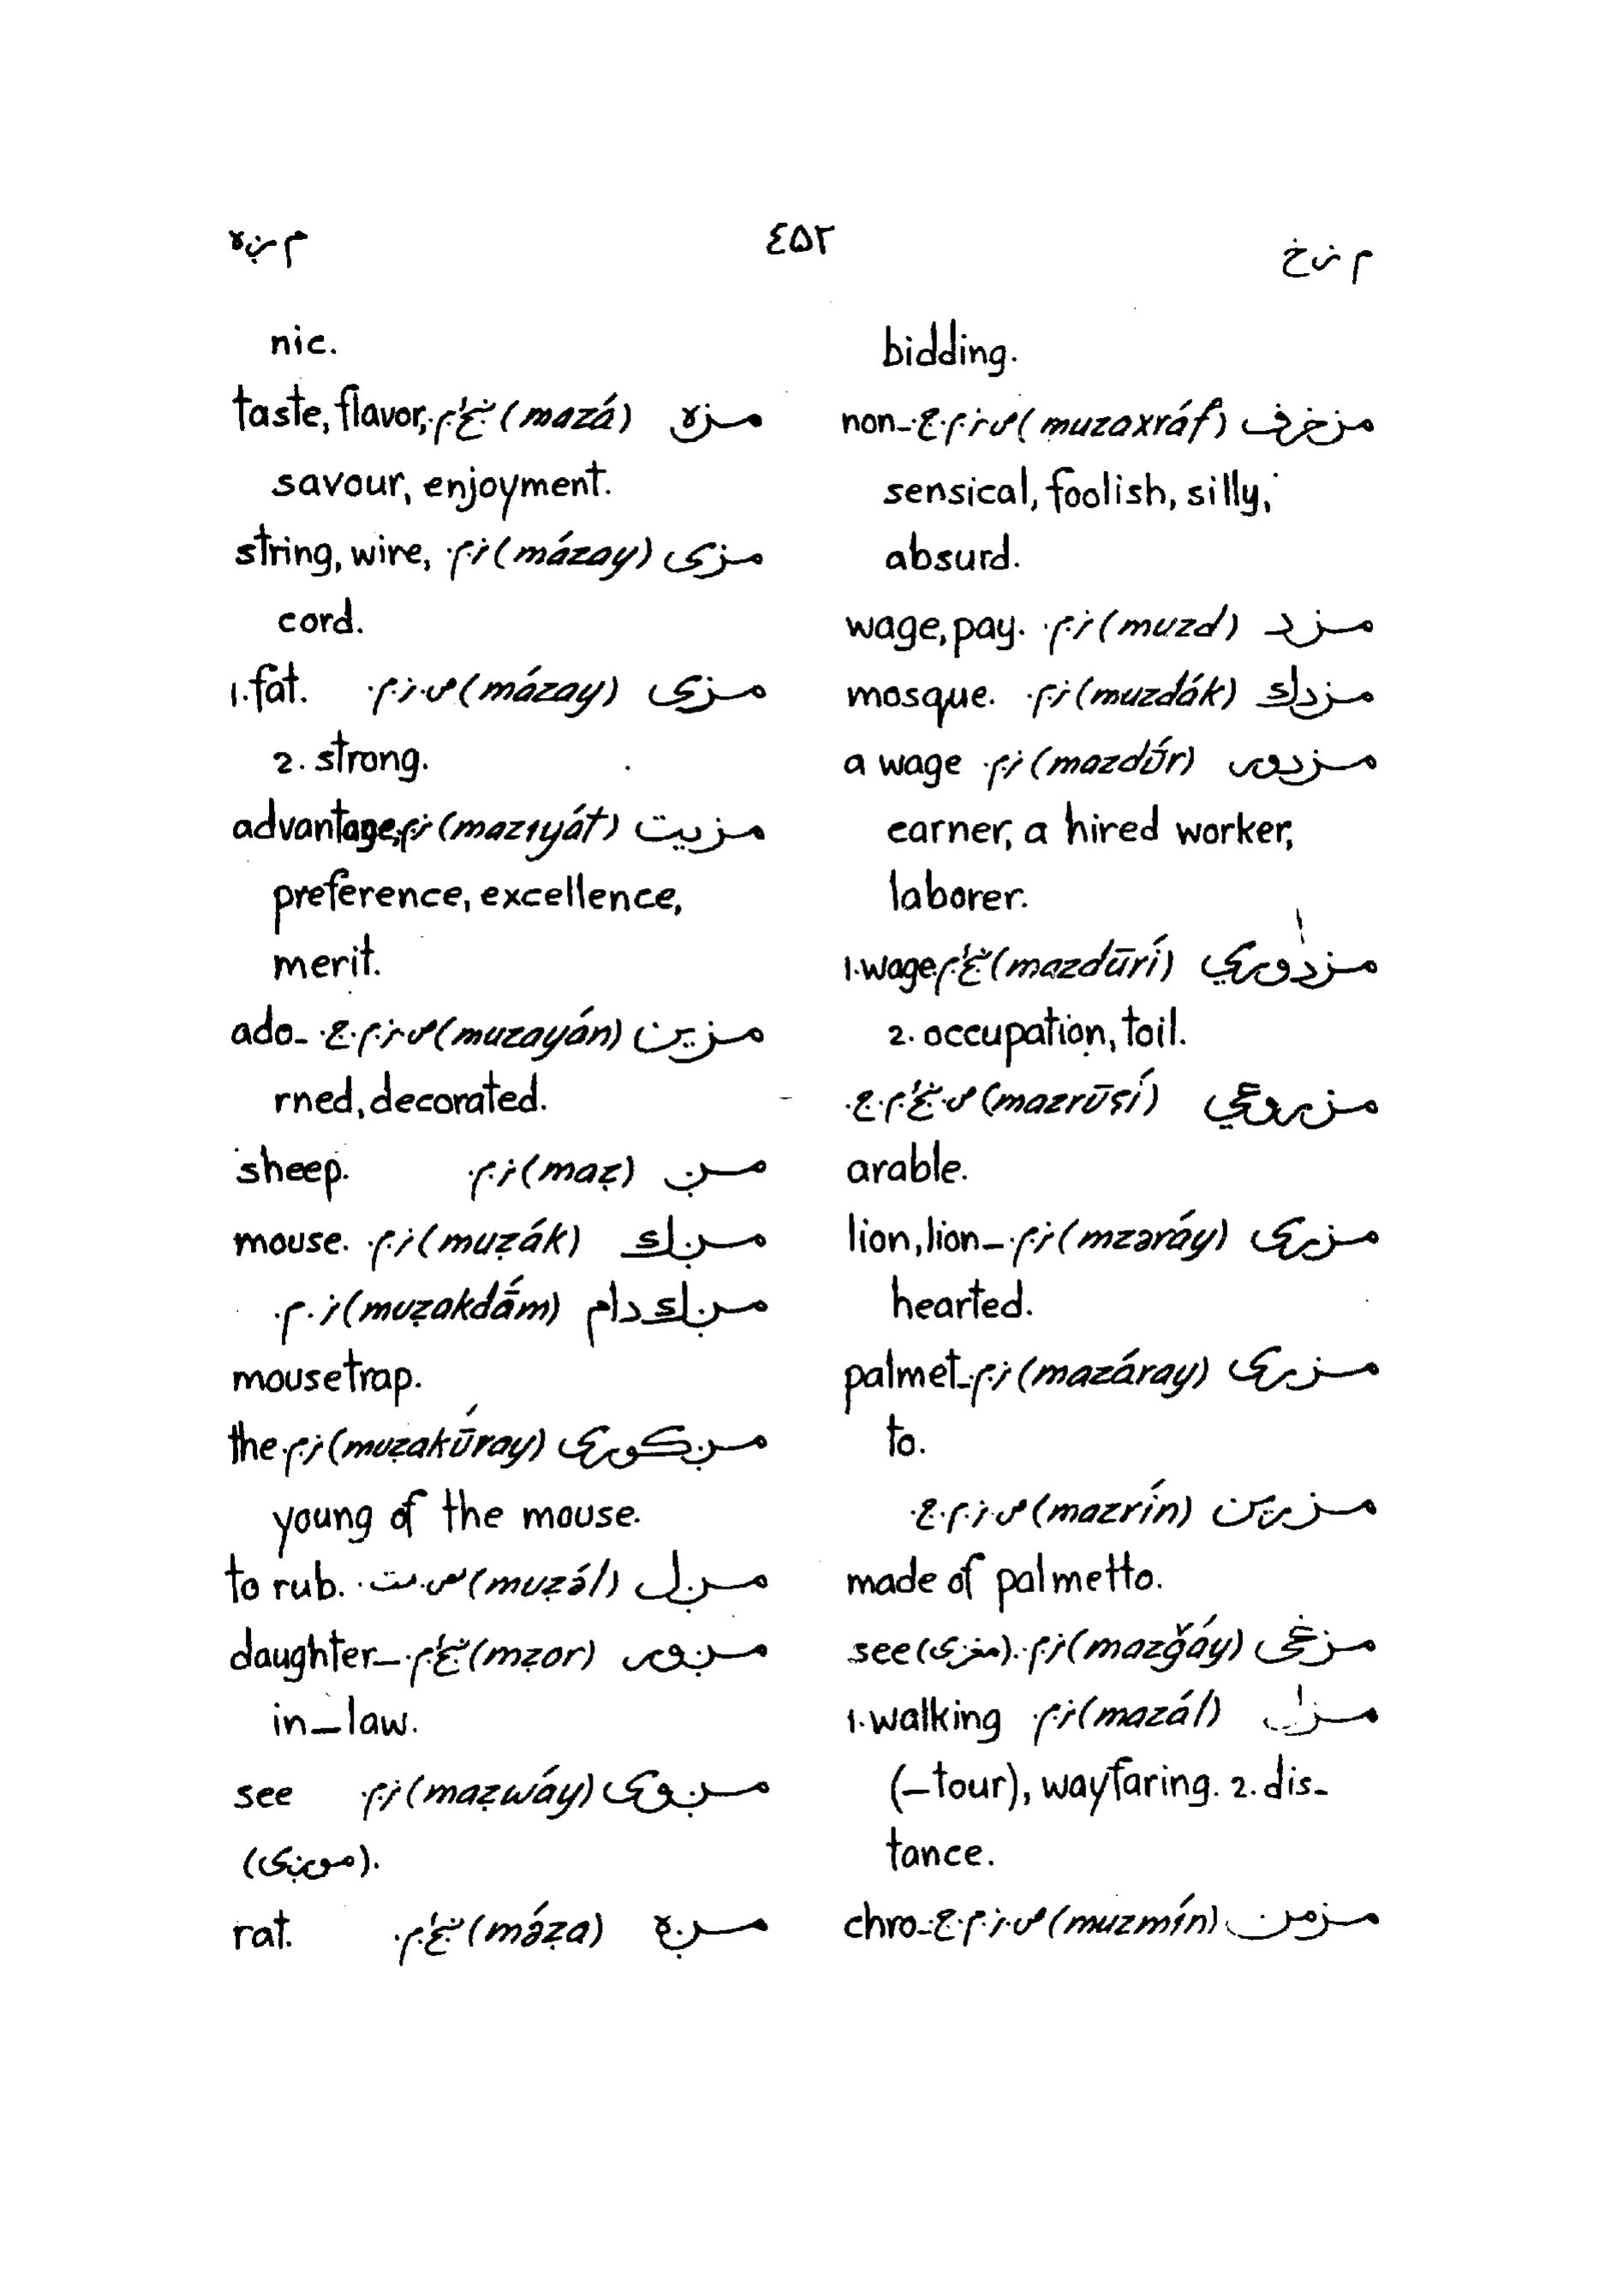 م ز خ ٤۵۲ م ږ ه
bidding.
مزخرف (muzaxráf) ص.ز.م.ج. non-
sensical, foolish, silly,
absurd.
مزد (muzd) ز.م. wage, pay.
مزدک (muzdák) ز.م. mosque.
مزدور (mazdū́r) ز.م. a wage
earner, a hired worker,
laborer.
مزدوري (mazdūrí) ښځ.م. 1. wage
2. occupation, toil.
مزروعي (mazrūʂí) ص.ښځ.م.ج.
arable.
مزری (mzəráy) ز.م. lion, lion-
hearted.
مزری (mazáray) ز.م. palmet-
to.
مزرین (mazrín) ص.ز.م.ج.
made of palmetto.
مزغی (mazğáy) ز.م. see (مغزی).
مزل (mazál) ز.م. 1. walking
(-tour), wayfaring. 2. dis-
tance.
مزمن (muzmín) ص.ز.م.ج. chro-
nic.
مزه (mazá) ښځ.م. taste, flavor,
savour, enjoyment.
مزی (mázay) ز.م. string, wire,
cord.
مزی (mázay) ص.ز.م. 1. fat.
2. strong.
مزیت (mazıyát) ز.م. advantage,
preference, excellence,
merit.
مزین (muzayán) ص.ز.م.ج. ado-
rned, decorated.
مږ (maẓ) ز.م. sheep.
مږک (muẓák) ز.م. mouse.
مږکدام (muẓakdā́m) ز.م.
mousetrap.
مږکوری (muẓakū́ray) ز.م. the
young of the mouse.
مږل (muẓə́l) to rub.
مږور (mẓor) ښځ.م. daughter-
in-law.
مږوی (maẓwáy) ز.م. see
(موږی).
مږه (mə́ẓa) ښځ.م. rat.